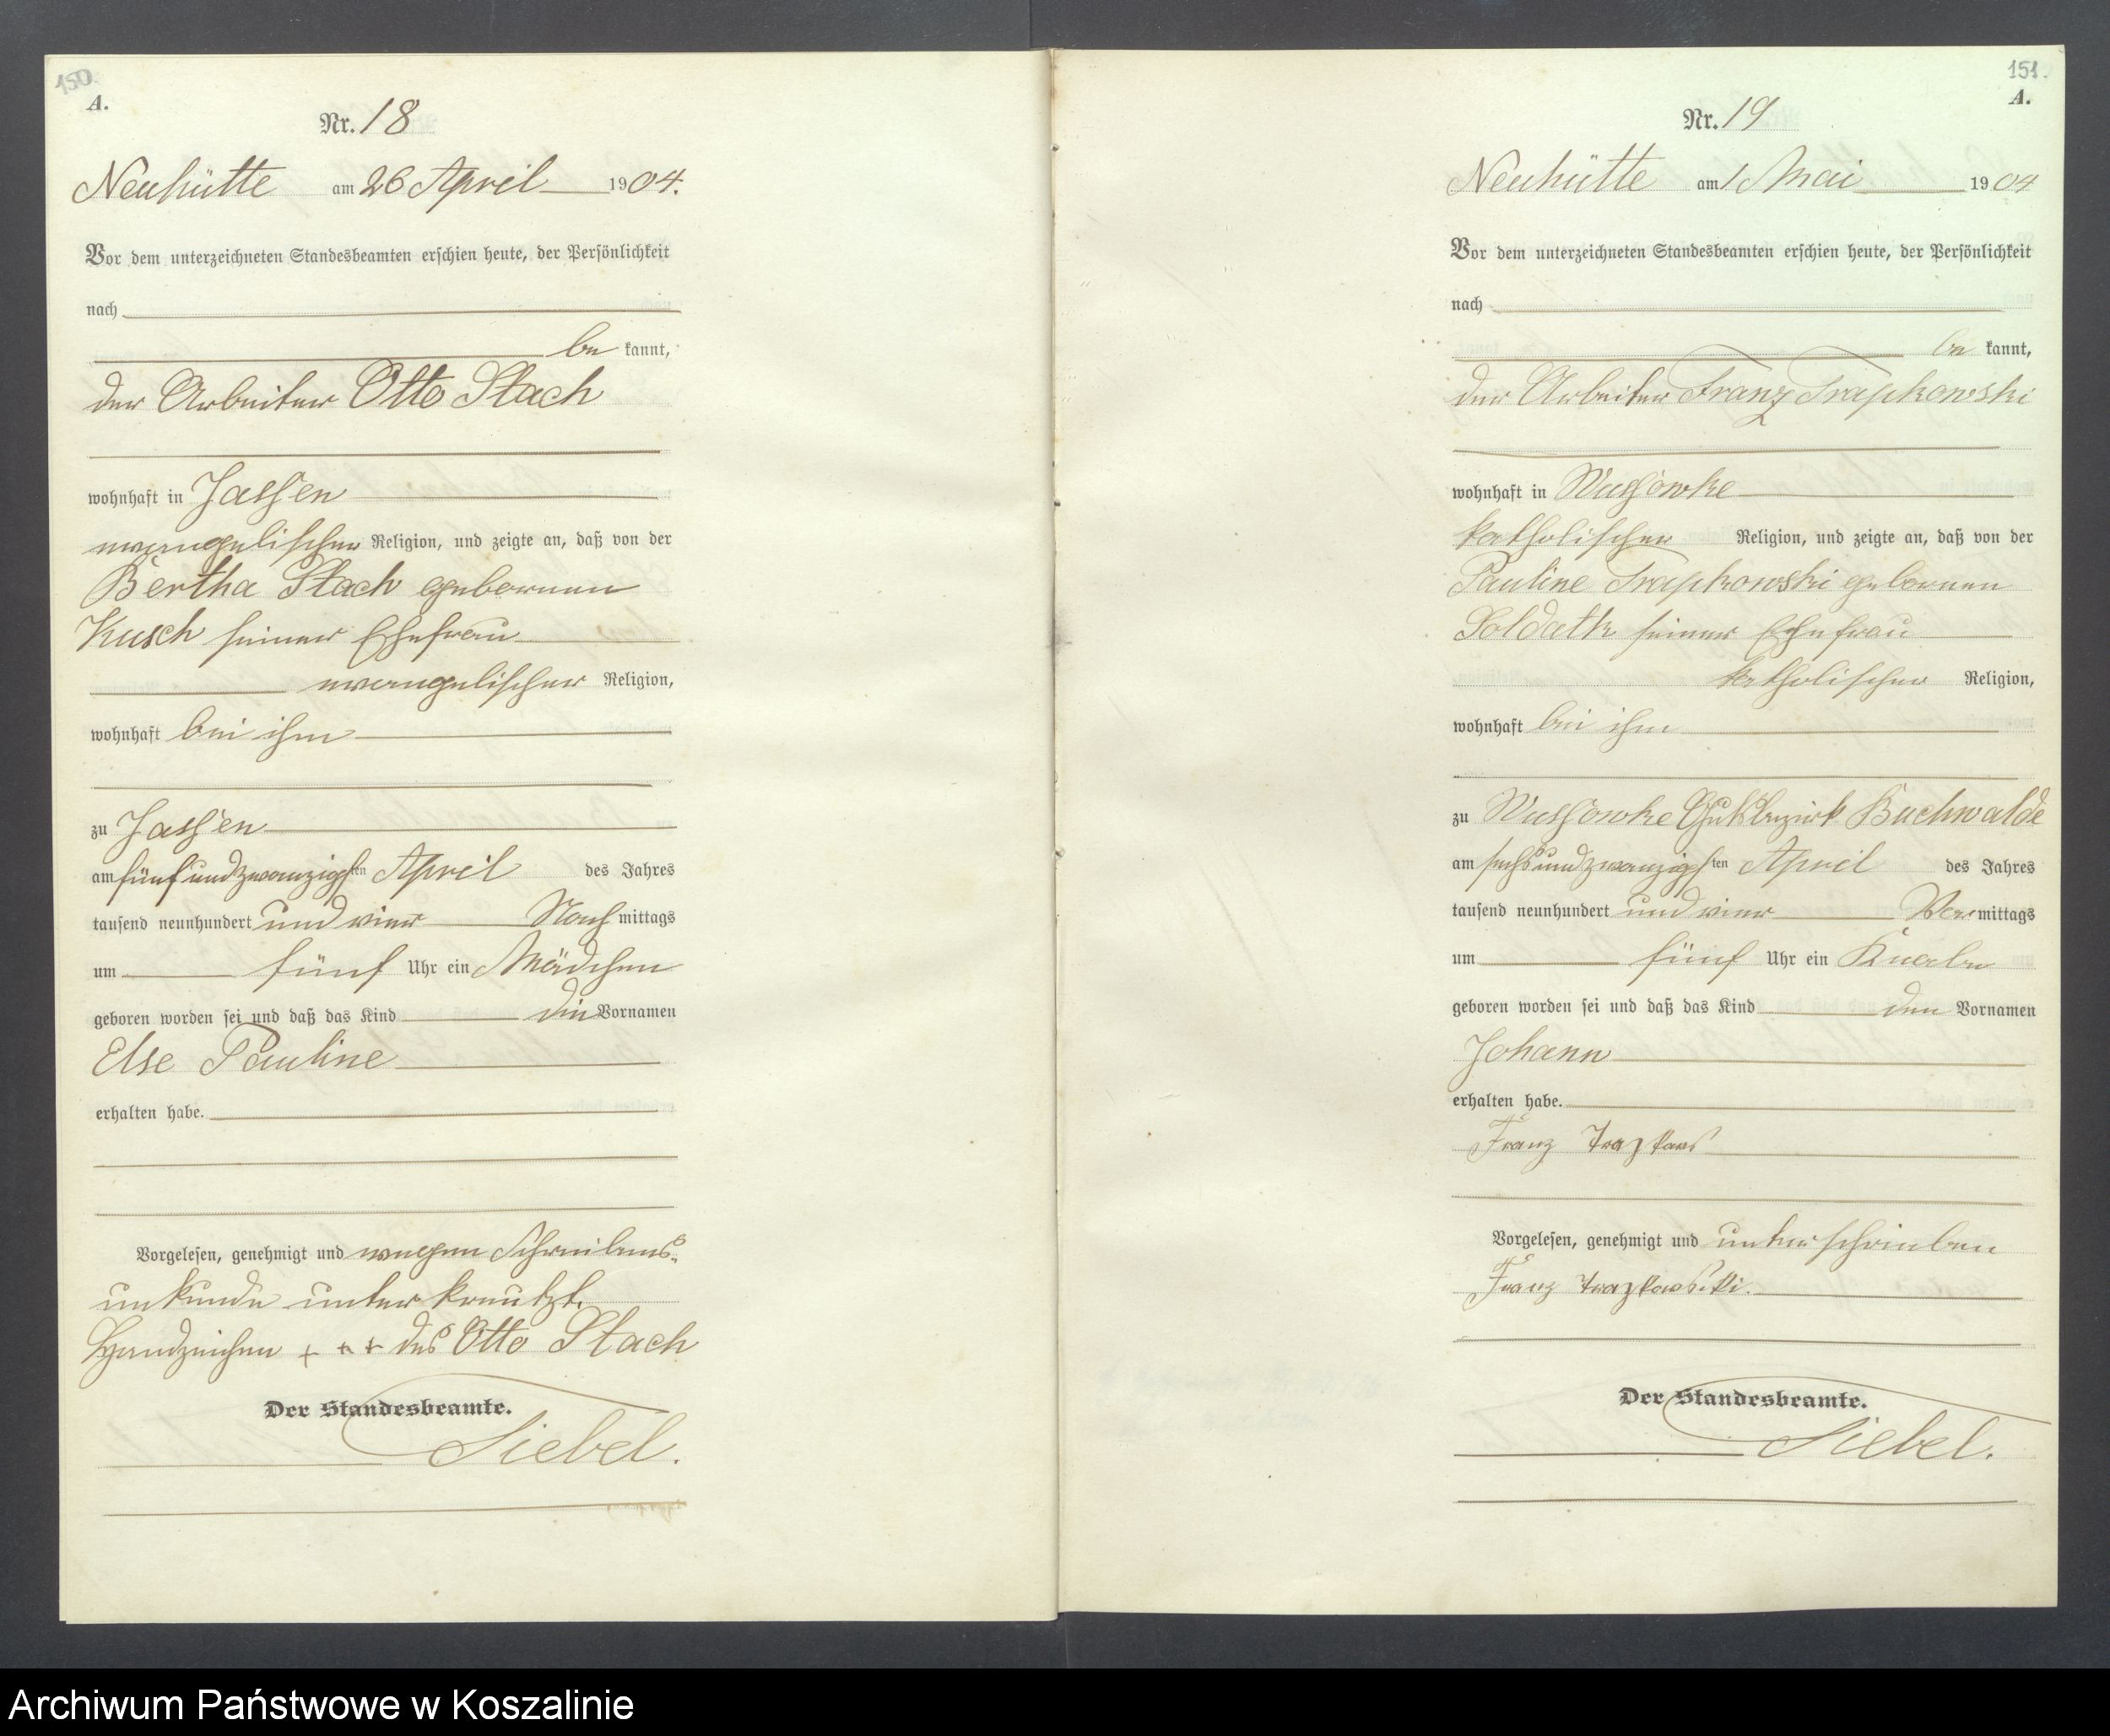 150
A.
Nr. 18
Neuhütte am 26 April 1904.
Vor dem unterzeichneten Standesbeamten erschien heute, der Persönlichkeit
nach
be kannt,
der Arbeiter Otto Stach
wohnhaft in Jassen
evangelischer Religion, und zeigte an, daß von der
Bertha Stach geborenen
Kusch seiner Ehefrau
evangelischer Religion,
wohnhaft bei ihm
zu Jassen
am fünfundzwanzigsten April des Jahres
tausend neunhundert und vier Nach mittags
um fünf Uhr ein Mädchen
geboren worden sei und daß das Kind die Vornamen
Else Pauline
erhalten habe.
Vorgelesen, genehmigt und wegen Schreibens-
unkunde unterkreutzt.
Handzeichen + + + des Otto Stach
Der Standesbeamte.
Siebel.
151.
A.
Nr. 19
Neuhütte am 1 Mai 1904
Vor dem unterzeichneten Standesbeamten erschien heute, der Persönlichkeit
nach
be kannt,
der Arbeiter Franz Trapkowski
wohnhaft in Wussowke
katholischer Religion, und zeigte an, daß von der
Pauline Trapkowski geborenen
Soldatk seiner Ehefrau
katholischer Religion,
wohnhaft bei ihm
zu Wussowke Gutsbezirk Buchwalde
am sechsundzwanzigsten April des Jahres
tausend neunhundert und vier Vor mittags
um fünf Uhr ein Knabe
geboren worden sei und daß das Kind den Vornamen
Johann
erhalten habe.
Franz
Vorgelesen, genehmigt und unterschrieben
Franz
Der Standesbeamte.
Siebel.
Archiwum Państwowe w Koszalinie